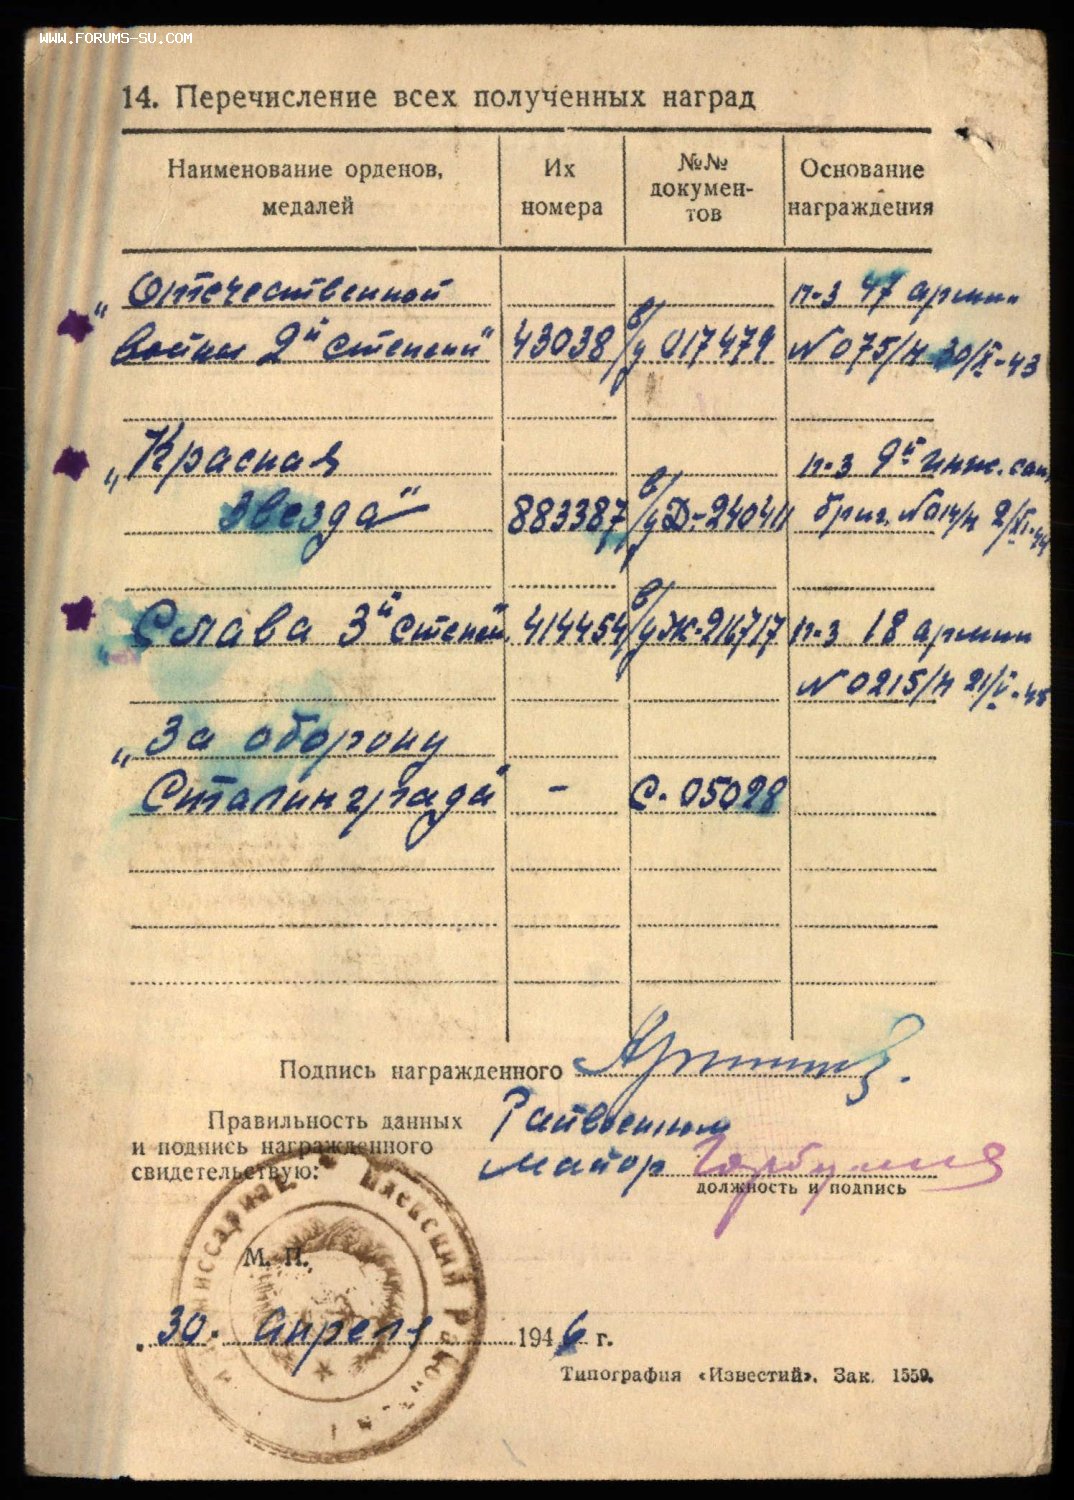 WWW.FORUMS-SU.COM
14. Перечисление всех полученных наград
Наименование орденов, медалей
Их номера
№№ докумен-тов
Основание награждения
„Отечественной п-з 47 армии
войны 2й степени" 43038 в/у 017479 № 075/н 30/X-43
„Красная п-з 9й инж. сап.
Звезда" 883387 в/у Д-240411 бриг. № 014/н 2/XI-44
Слава 3й степен. 414454 в/у Ж-216717 п-з 18 армии
№ 0215/н 21/V-45
„За оборону
Сталинграда" - С. 05028
Подпись награжденного
Правильность данных Райвоенком
и подпись награжденного
свидетельствую: майор
должность и подпись
М. П.
30. апреля 1946 г.
Типография «Известий». Зак. 1559.